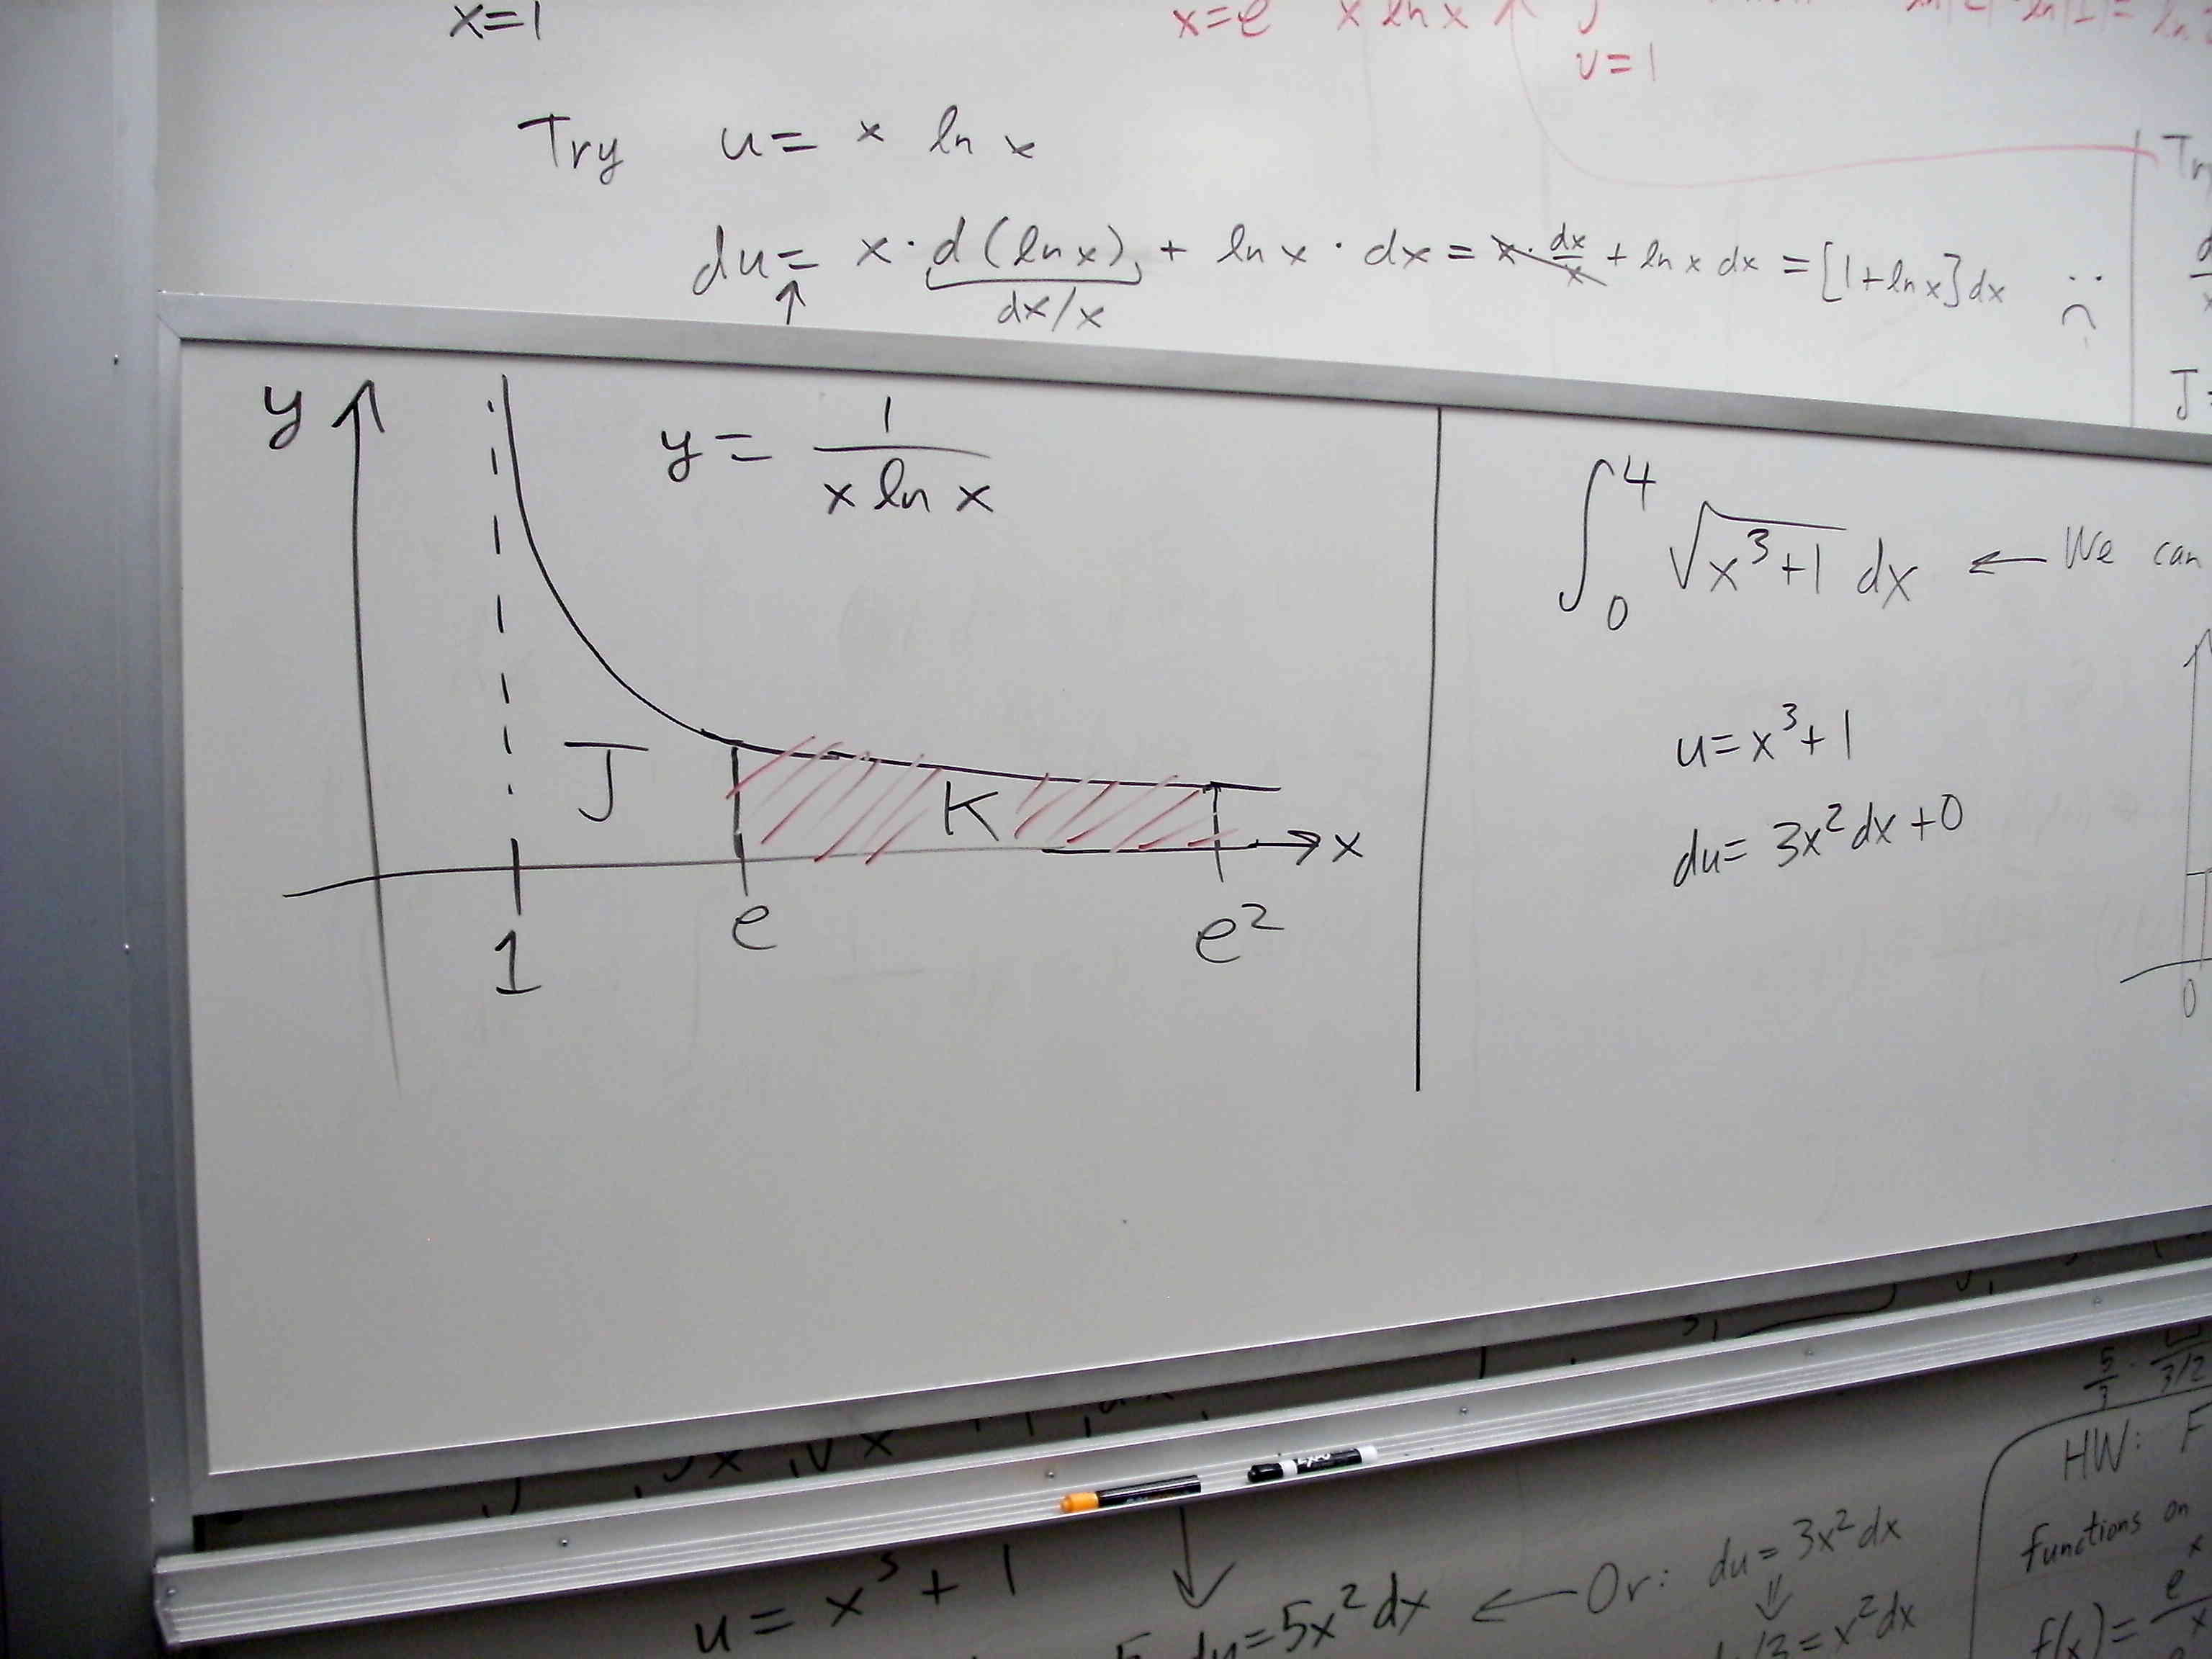 x=1
x=e x ln x
u=1
Try u= x ln x
du= x·d(ln x) + ln x · dx = x·dx/x + ln x dx = [1+ln x]dx
dx/x
J=
y
y= 1/(x ln x)
J
K
x
1
e
e²
∫₀⁴ √(x³+1) dx ← We can
u=x³+1
du= 3x²dx+0
0
EXPO
5/3 ·
3/2
HW: F
functions on
f(x)= e^x/x
u = x³ + 1
du=5x²dx ← Or: du=3x²dx
⇓
/3=x²dx